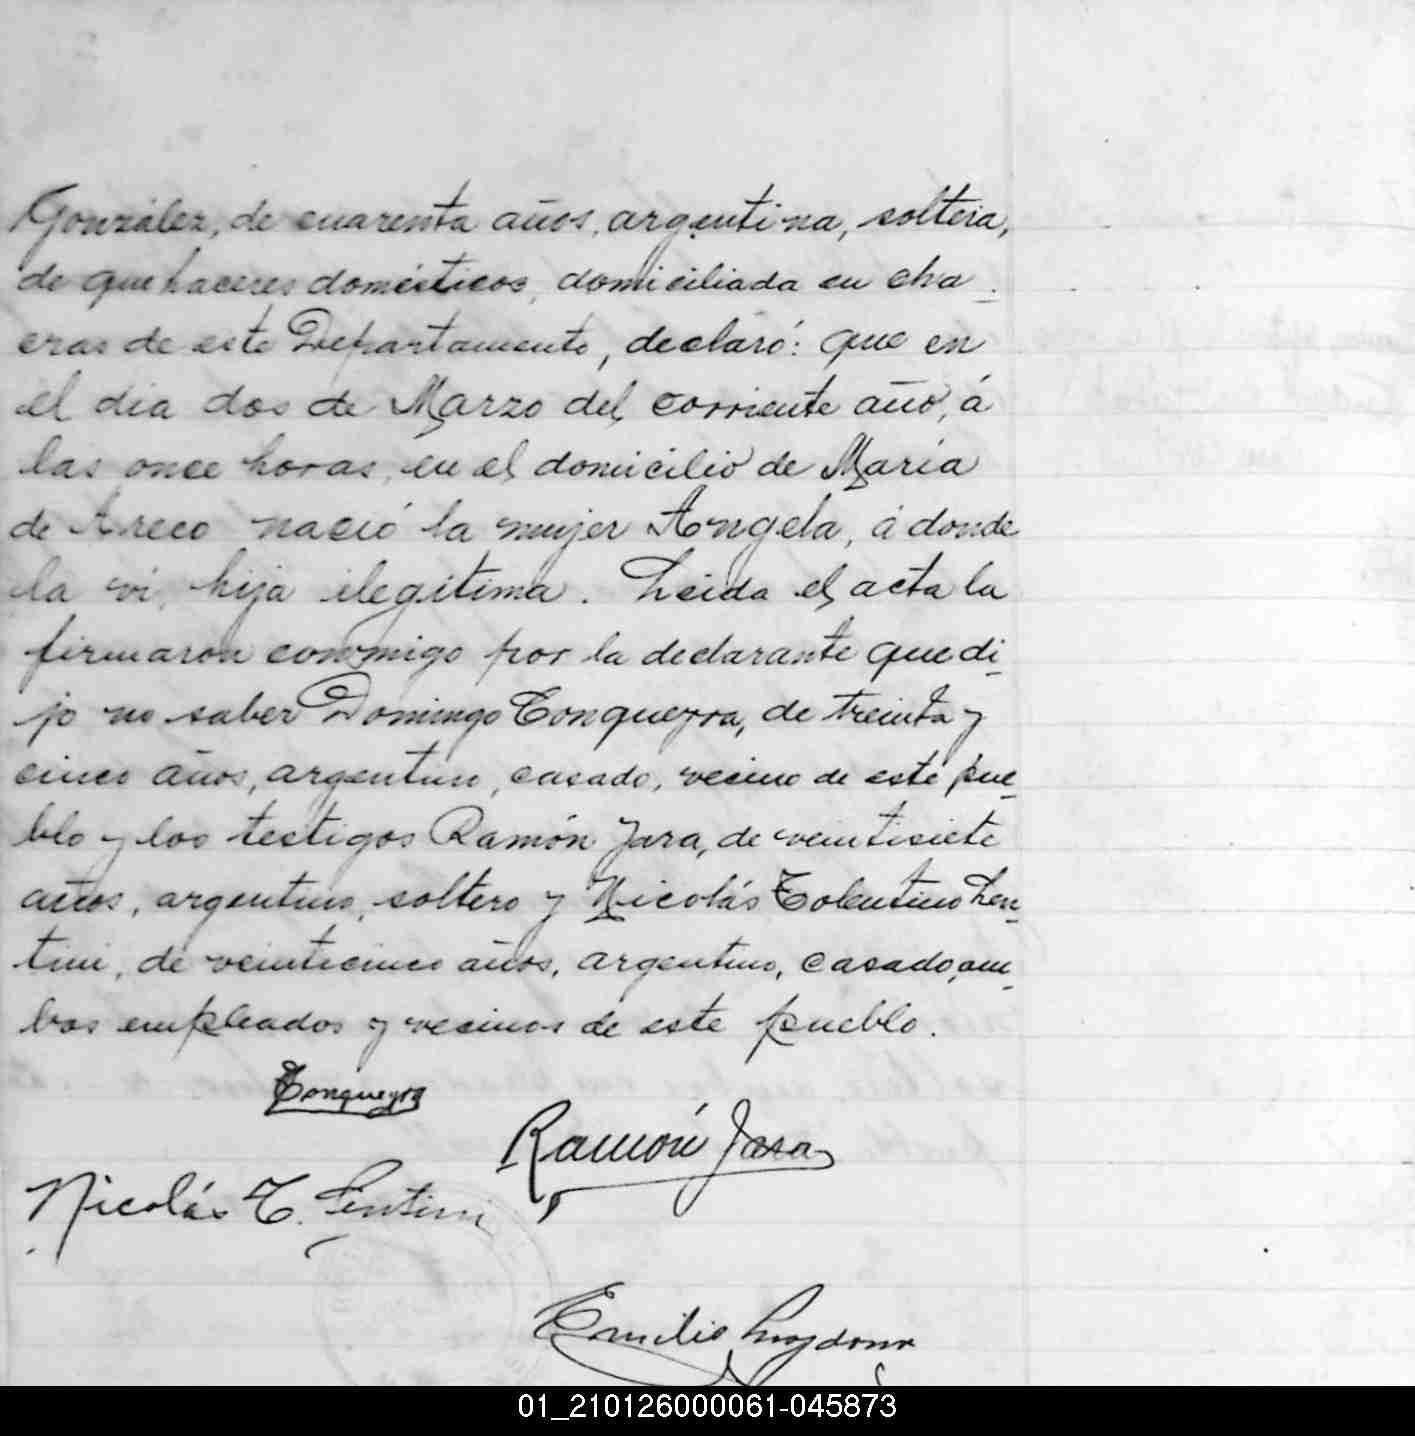 González, de cuarenta años, argentina, soltera,
de quehaceres domésticos, domiciliada en cha-
cras de este Departamento, declaró: que en
el dia dos de Marzo del corriente año, á
las once horas, en el domicilio de María
de Areco nació la mujer Angela, á donde
la vi, hija ilegítima. Leida el acta la
firmaron conmigo por la declarante que di-
jo no saber Domingo Conqueyra, de treinta y
cinco años, argentino, casado, vecino de este pue-
blo y los testigos Ramón Jara, de veintisiete
años, argentino, soltero y Nicolás Tolentino Len-
tini, de veinticinco años, argentino, casado, am-
bos empleados y vecinos de este pueblo.
Conqueyra
Ramón Jara
Nicolás T. Lentini
Emilio
01_210126000061-045873